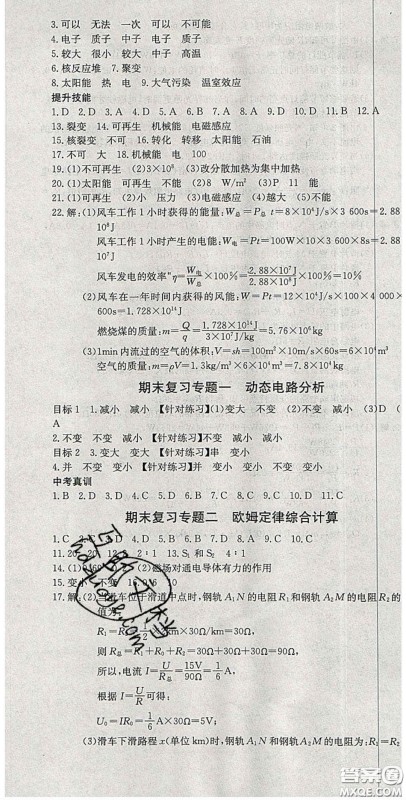 3.可以 无法 一次 可以 不可能
4.电子 质子 中子 电子 质子
5.较大 很小 较大 中子 高温
6.核反应堆 7.聚变
8.太阳能 热 电 9.大气污染 温室效应
提升技能
1.D 2.D 3.A 4.D 5.A 6.B 7.A 8.C 9.D 10.D 11.B 12.A
13.裂变 14.可再生 机械能 电磁感应
15.核裂变 不可 16.转化 转移 太阳能 石油
17.不可 大 18.机械能 电 100
19.(1)不可再生 (2)3×10⁸ (3)改分散加热为集中加热
20.(1)太阳能 可再生 (2)8 W/m² (3)D
21.(1)可再生 (2)小 压力 (3)电磁感应 (4)D
22.解:(1)风车工作1小时获得的能量:W总=P总t=8×10⁴J/s×3 600s=2.88×
10⁸J
风车工作1小时产生的电能:W电=P电t=100W×10×3 600s=2.88×
10⁷J
风车发电的效率η=W电/W总×100%=2.88×10⁷J/2.88×10⁸J×100%=10%
(2)风车在一年时间内获得的风能:W=Pt=12×10⁶W×4 000×
3 600s=1.728×10¹⁴J
燃烧煤的质量:m=Q/q=1.728×10¹⁴J/3×10⁷J/kg=5.76×10⁶kg
(3)1min内流过的空气的体积:V=sh=100m²×10m/s×60s=6×10⁴m³
空气的质量:m=ρV=1.3kg/m³×6×10⁴m³=7.8×10⁴kg
期末复习专题一 动态电路分析
目标1 1.减小 减小 【针对练习】(1)变大 不变 (2)不变 减小 (3)D (
A
2.不变 不变 减小 【针对练习】不变 减小 减小
目标2 3.变大 变大 【针对练习】串 变小
4.并 不变 变小 【针对练习】并 不变 变小 变小
中考真训
1.B 2.D 3.D 4.C 5.D 6.C 7.C 8.D 9.C
期末复习专题二 欧姆定律综合计算
(2)磁场对通电导体有力的作用
则R总=R₁+R₀+R₂=30Ω+30Ω+30Ω=90Ω
所以,电流I=U/R总=15V/90Ω=1/6A,
根据I=U/R可得:
U₀=IR₀=1/6A×30Ω=5V;
(3)滑车下滑路程x(单位km)时,钢轨A₁N和钢轨A₂M的电阻为:R₁=R₂
答案圈
MXQE.COM